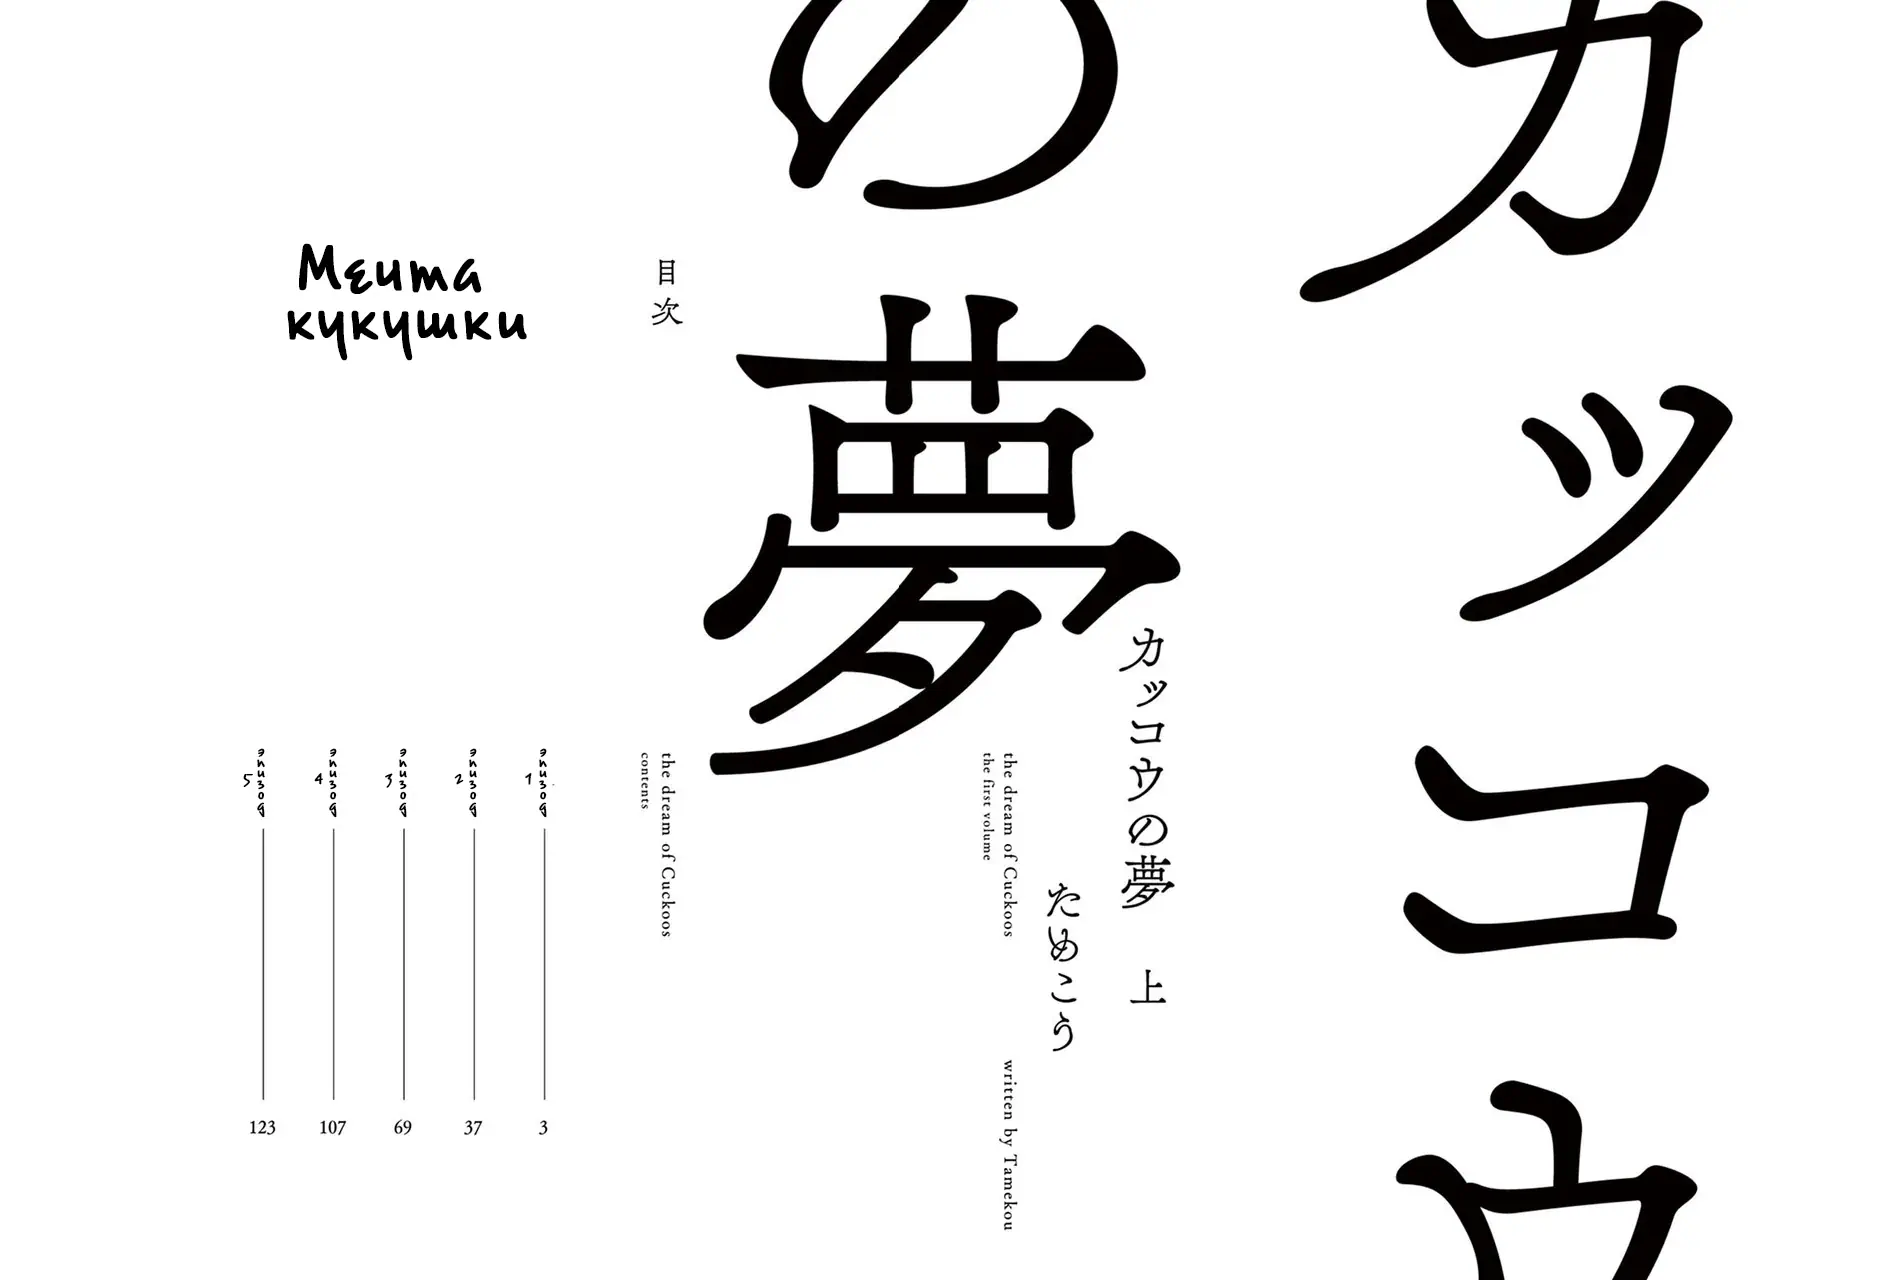 カッコウ
の夢
カッコウの夢 上
ためこう
the dream of Cuckoos
the first volume
written by Tamekou
目次
the dream of Cuckoos
contents
Мечта
кукушки
эпизод 1
3
эпизод 2
37
эпизод 3
69
эпизод 4
107
эпизод 5
123